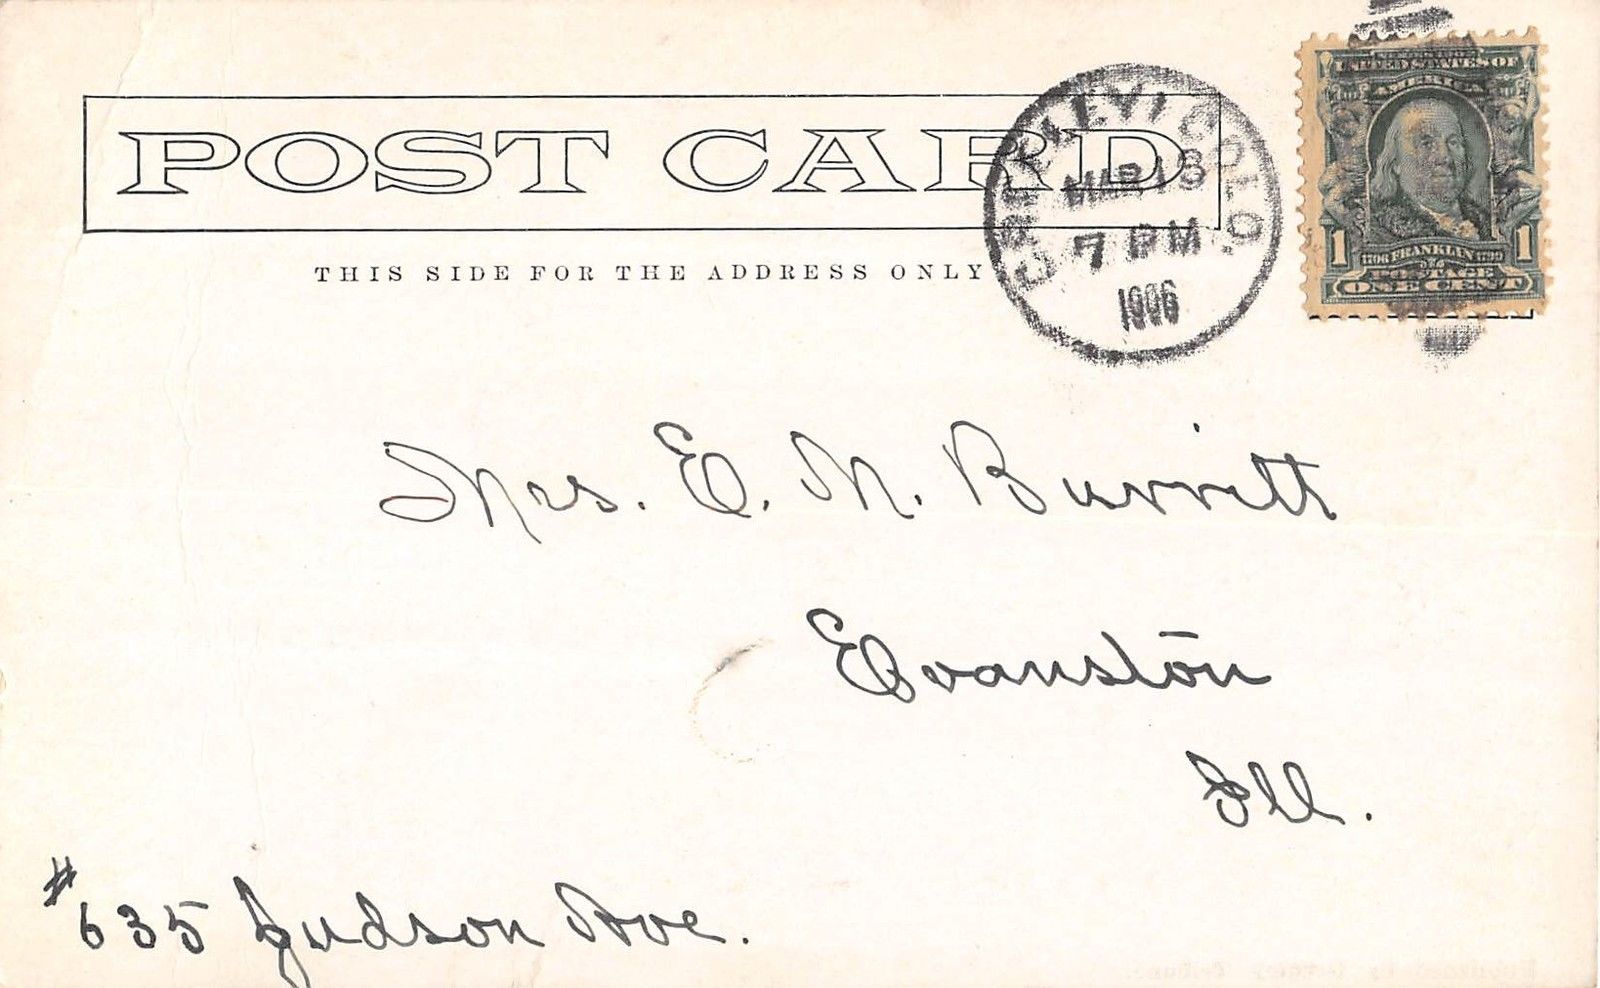 POST CARD
THIS SIDE FOR THE ADDRESS ONLY
GREELEY, COLO.
MAR 18
7 PM
1906
UNITED STATES OF
AMERICA
1 1706 FRANKLIN 1790 1
POSTAGE
ONE CENT
Mrs. E. M. Burritt
Evanston
Ill.
#635 Judson Ave.